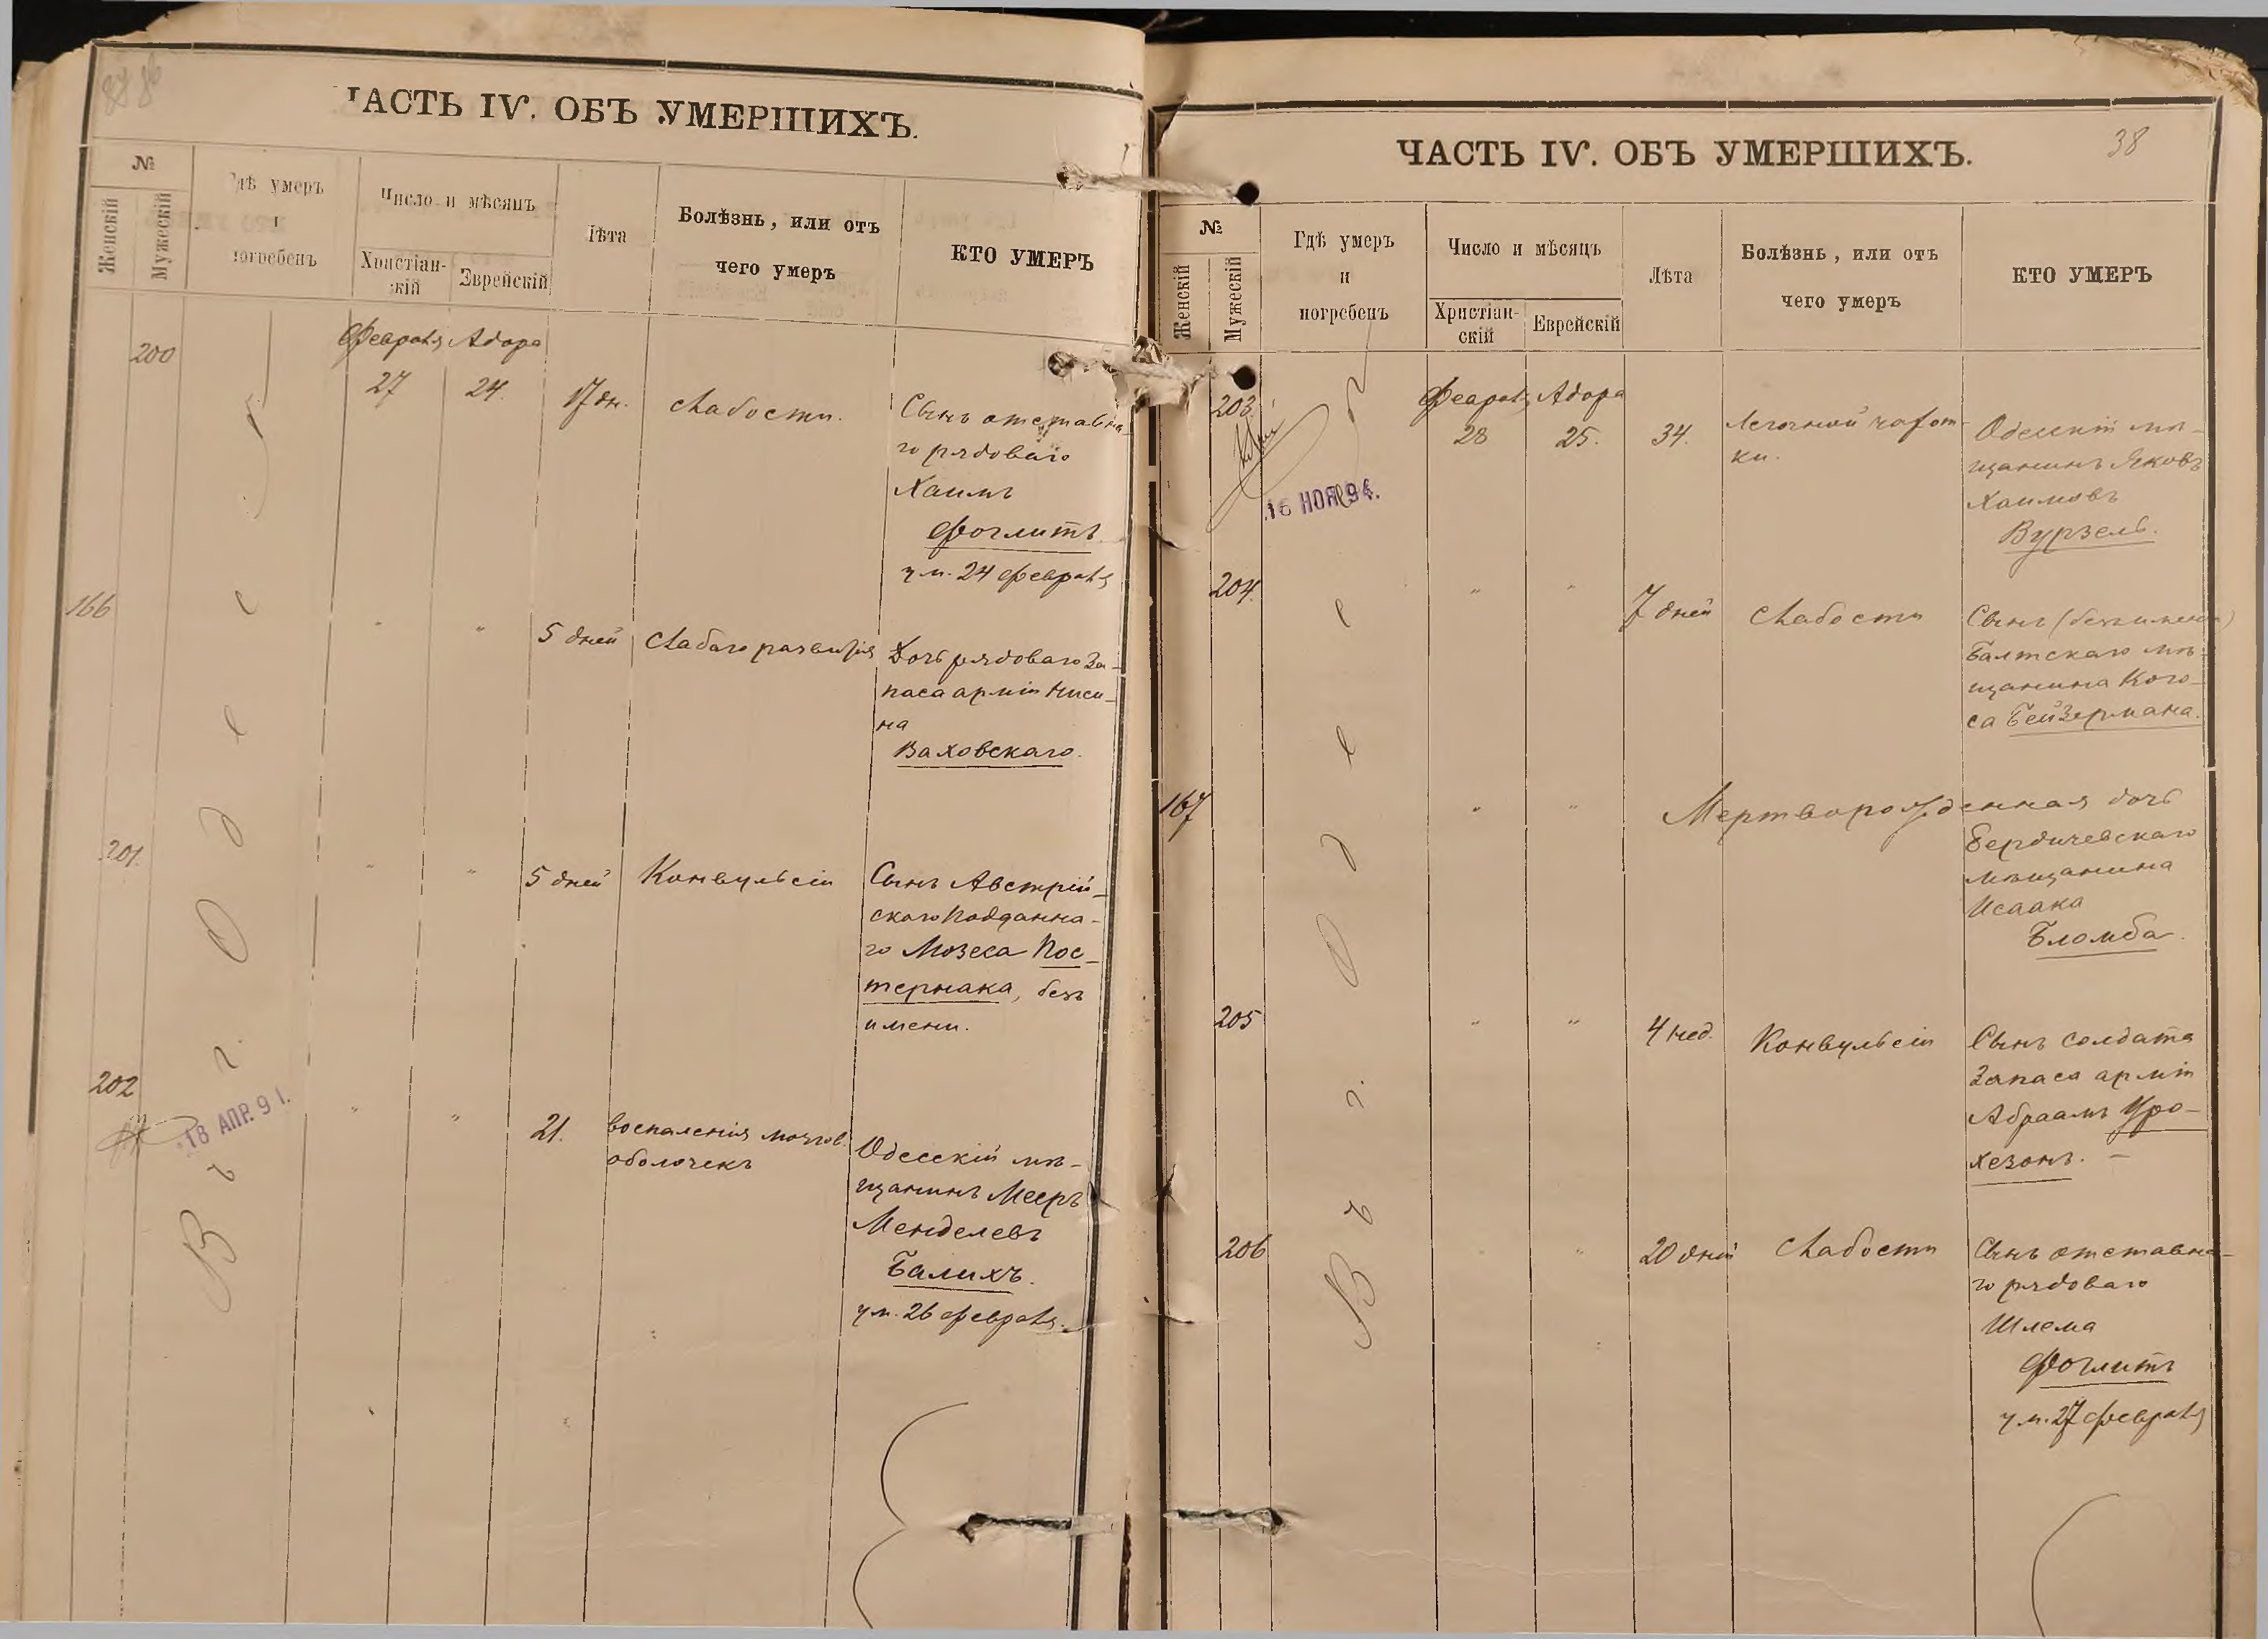 ЧАСТЬ IV. ОБЪ УМЕРШИХЪ.
№
Женскій
Мужескій
Гдѣ умеръ
и
погребенъ
Число и мѣсяцъ
Христіан-
скій
Еврейскій
Лѣта
Болѣзнь, или отъ
чего умеръ
КТО УМЕРЪ
Въ г. Одессѣ
Февраля Адора
200
27 24. 17 дн. Слабости.
Сынъ отставна-
го рядоваго
Хаимъ
Фоглитъ
ум. 24 февраля
166
" " 5 дней Слабаго развитія
Дочь рядоваго За-
паса арміи Ниси-
на
Ваховскаго.
201.
" " 5 дней Конвульсіи
Сынъ Австрій-
скаго Подданна-
го Мозеса Пос-
тернака, безъ
имени.
202
18 АПР. 91.
" " 21. воспаленія мозгов.
оболочекъ
Одесскій мѣ-
щанинъ Мееръ
Менделевъ
Балихъ.
ум. 26 февраля.
38
ЧАСТЬ IV. ОБЪ УМЕРШИХЪ.
№
Женскій
Мужескій
Гдѣ умеръ
и
погребенъ
Число и мѣсяцъ
Христіан-
скій
Еврейскій
Лѣта
Болѣзнь, или отъ
чего умеръ
КТО УМЕРЪ
Въ г. Одессѣ
Февраля Адора
203.
16 НОЯ 94.
28 25. 34. Легочной чахот-
ки.
Одесскій мѣ-
щанинъ Яковъ
Хаимовъ
Вурзель.
204.
" " 7 дней Слабости
Сынъ (безъ имени)
Балтскаго мѣ-
щанина Кого-
са Бейзермана.
167
" " Мертворожденная дочь
Бердичевскаго
мѣщанина
Исаака
Бломба.
205
" " 4 нед. Конвульсіи
Сынъ солдата
Запаса арміи
Абраамъ Уро-
хезонъ. –
206
" " 20 дней Слабости
Сынъ отставна-
го рядоваго
Шлема
Фоглитъ
ум. 27 февраля